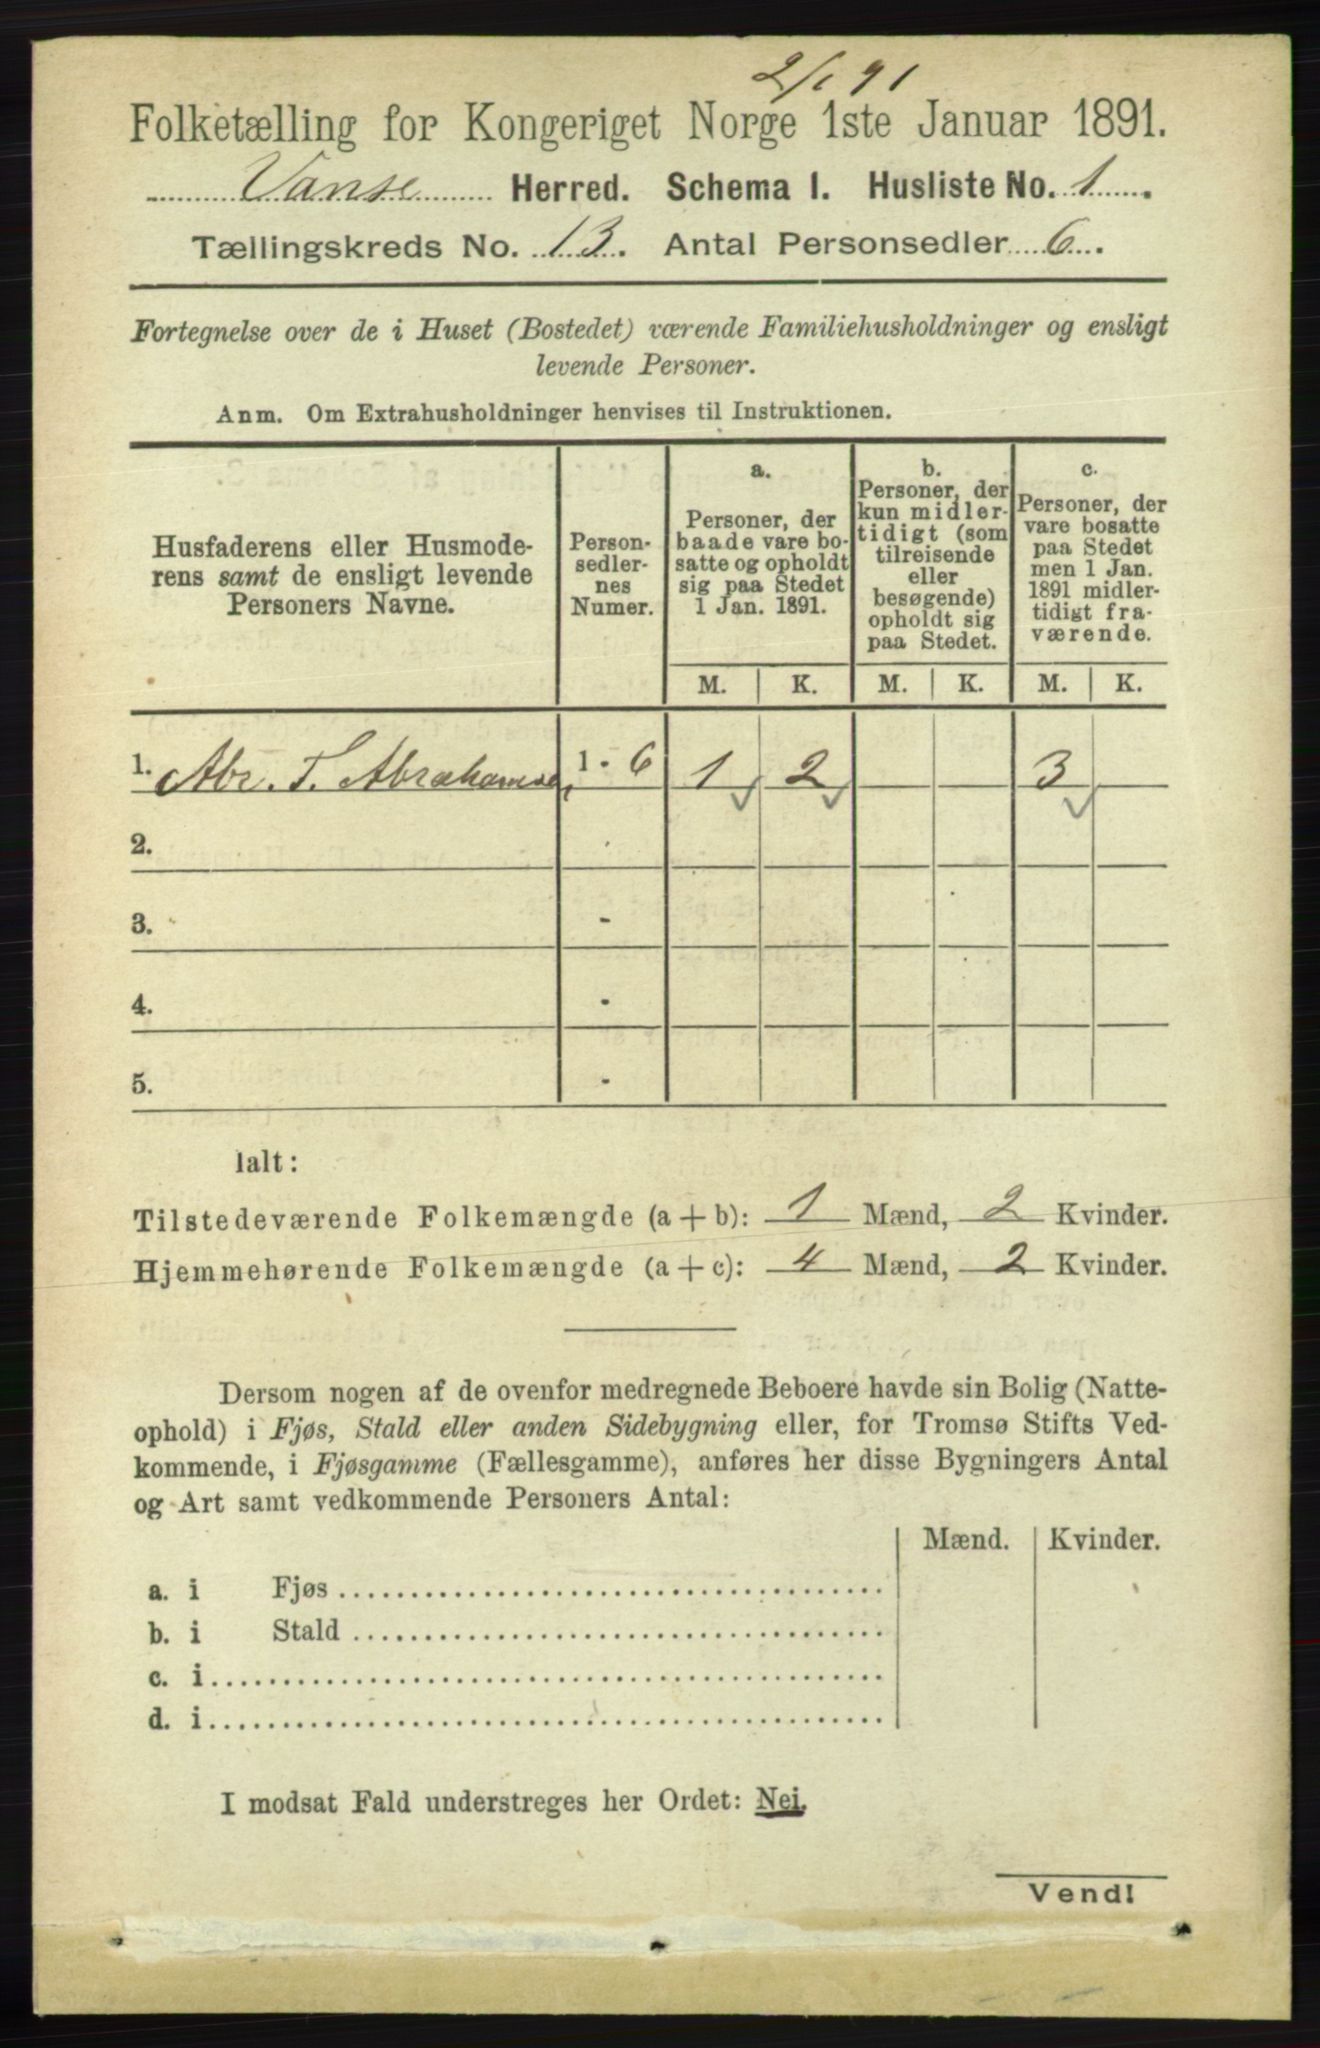 2/1 91
Folketælling for Kongeriget Norge 1ste Januar 1891.
Vanse Herred. Schema I. Husliste No. 1.
Tællingskreds No. 13. Antal Personsedler 6.
Fortegnelse over de i Huset (Bostedet) værende Familiehusholdninger og ensligt
levende Personer.
Anm. Om Extrahusholdninger henvises til Instruktionen.
Husfaderens eller Husmode-
rens samt de ensligt levende
Personers Navne.
Person-
sedler-
nes
Numer.
a.
Personer, der
baade vare bo-
satte og opholdt
sig paa Stedet
1 Jan. 1891.
b.
Personer, der
kun midler-
tidigt (som
tilreisende
eller
besøgende)
opholdt sig
paa Stedet.
c.
Personer, der
vare bosatte
paa Stedet
men 1 Jan.
1891 midler-
tidigt fra-
værende.
M. K. M. K. M. K.
1. Abr. T. Abrahamsen, 1 - 6 1 2 3
2.
3. -
4. -
5. -
Ialt:
Tilstedeværende Folkemængde (a + b): 1 Mænd, 2 Kvinder.
Hjemmehørende Folkemængde (a + c): 4 Mænd, 2 Kvinder.
Dersom nogen af de ovenfor medregnede Beboere havde sin Bolig (Natte-
ophold) i Fjøs, Stald eller anden Sidebygning eller, for Tromsø Stifts Ved-
kommende, i Fjøsgamme (Fællesgamme), anføres her disse Bygningers Antal
og Art samt vedkommende Personers Antal:
Mænd. Kvinder.
a. i Fjøs
b. i Stald
c. i
d. i
I modsat Fald understreges her Ordet: Nei.
Vend!